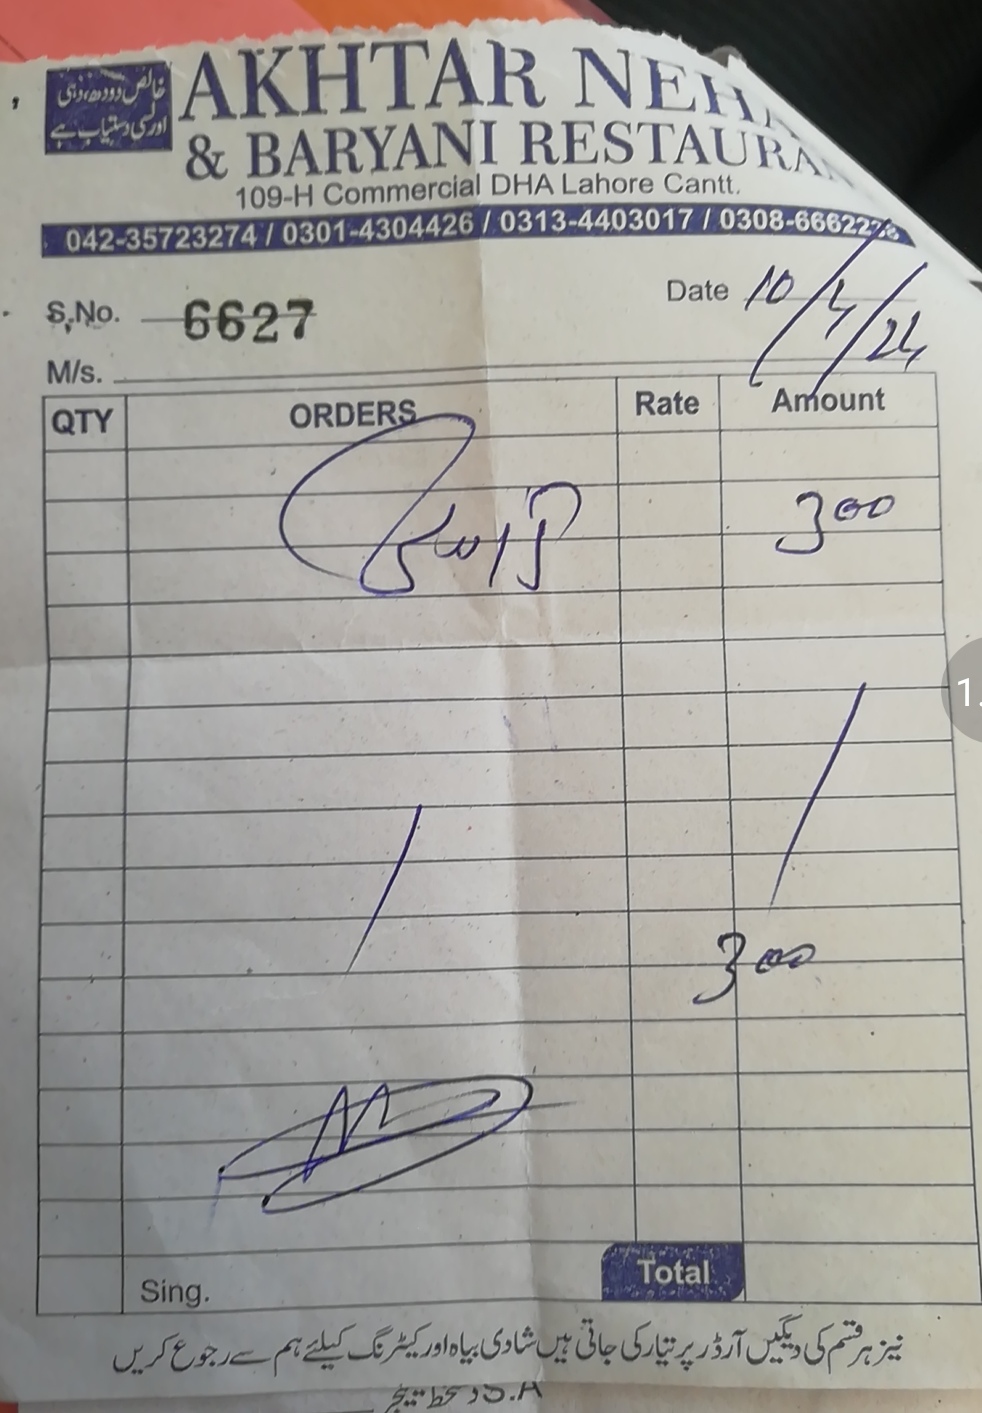 خالص دودھ، دہی
اور لسی دستیاب ہے
AKHTAR NEHA
& BARYANI RESTAURAN
109-H Commercial DHA Lahore Cantt.
042-35723274 / 0301-4304426 / 0313-4403017 / 0308-6662226
S,No. 6627
Date 10/4/24
M/s.
QTY ORDERS Rate Amount
300
300
Total
Sing.
نیز ہر قسم کی دیگیں آرڈر پر تیار کی جاتی ہیں شادی بیاہ اور کیٹرنگ کیلئے ہم سے رجوع کریں